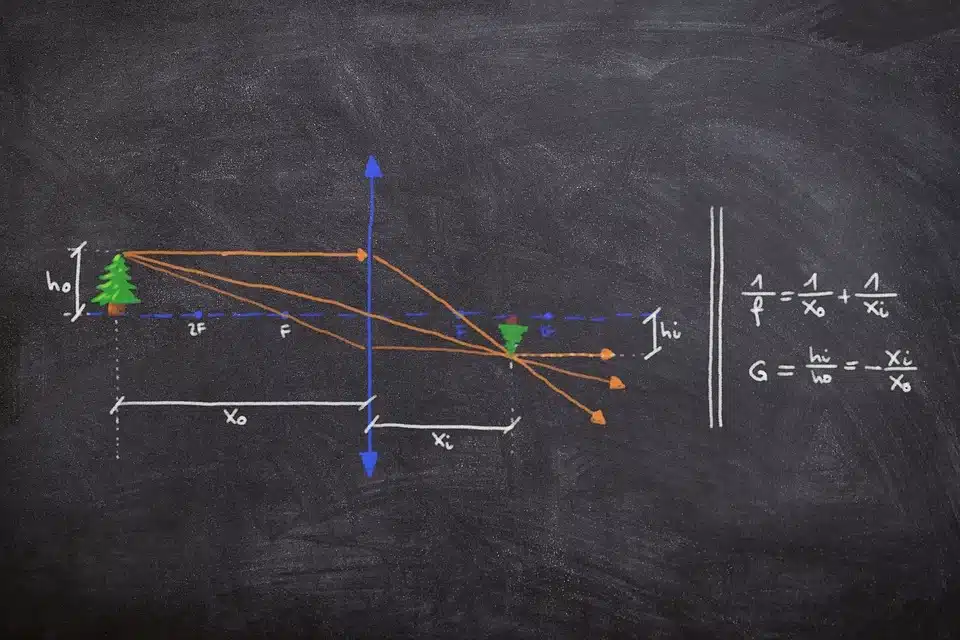 h₀
2F
F
F
hi
X₀
Xi
1/f = 1/X₀ + 1/Xi
G = hi/h₀ = -Xi/X₀